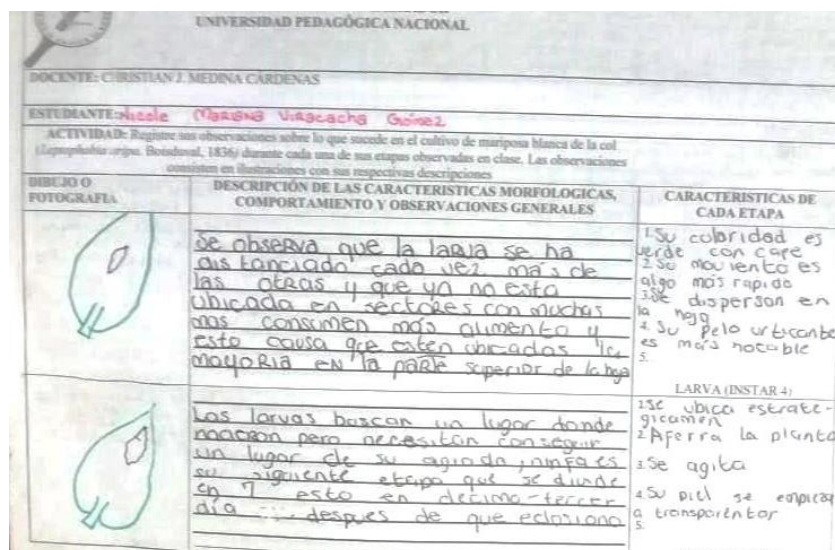 UNIVERSIDAD PEDAGÓGICA NACIONAL
DOCENTE: CHRISTIAN J. MEDINA CÁRDENAS
ESTUDIANTE: Nicole Mariana Viracacha Gómez
ACTIVIDAD: Registre sus observaciones sobre lo que sucede en el cultivo de mariposa blanca de la col
(Leptophobia aripa. Boisduval, 1836) durante cada una de sus etapas observadas en clase. Las observaciones
consisten en ilustraciones con sus respectivas descripciones
DIBUJO O
FOTOGRAFIA
DESCRIPCIÓN DE LAS CARACTERISTICAS MORFOLOGICAS,
COMPORTAMIENTO Y OBSERVACIONES GENERALES
CARACTERISTICAS DE
CADA ETAPA
Se observa que la larva se ha
distanciado cada vez más de
las otras y que ya no esta
ubicada en sectores con muchas
mas consumen más alimento y
esto causa que esten ubicadas la
mayoria en la parte superior de la hoja
1. Su coloridad es
verde con cafe
2. Su moviento es
algo mas rapido
3. Se dispersan en
la hoja
4. Su pelo urticante
es mas notable
5.
LARVA (INSTAR 4)
Las larvas buscan un lugar donde
pero necesitan conseguir
un lugar de su agrado, ninfa es
su siguiente etapa que se divide
en 7 esto en decimo-tercer
día ... despues de que eclosiono
1. Se ubica estrate-
gicamen
2. Aferra la planta
3. Se agita
4. Su piel se empieza
a transparentar
5.